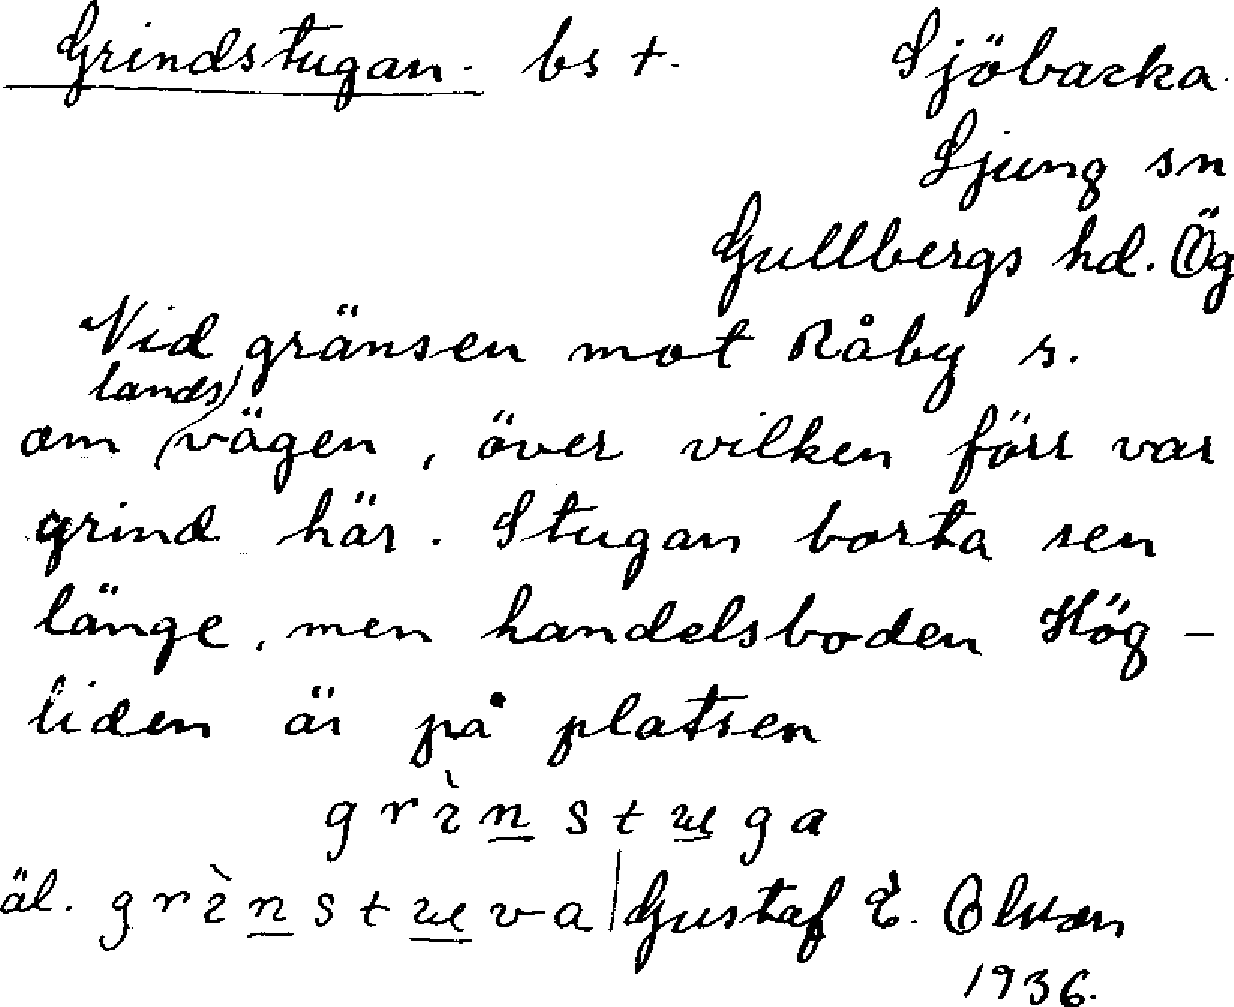 Grindstugan. bs +. Sjöbacka.
Ljung sn
Gullbergs hd. Ög
Vid gränsen mot Råby s.
om landsvägen, över vilken förr var
grind här. Stugan borta sen
länge, men handelsboden Hög-
liden är på platsen
grìnstuga
äl. grìnstuva | Gustaf E. Olsson
1936.